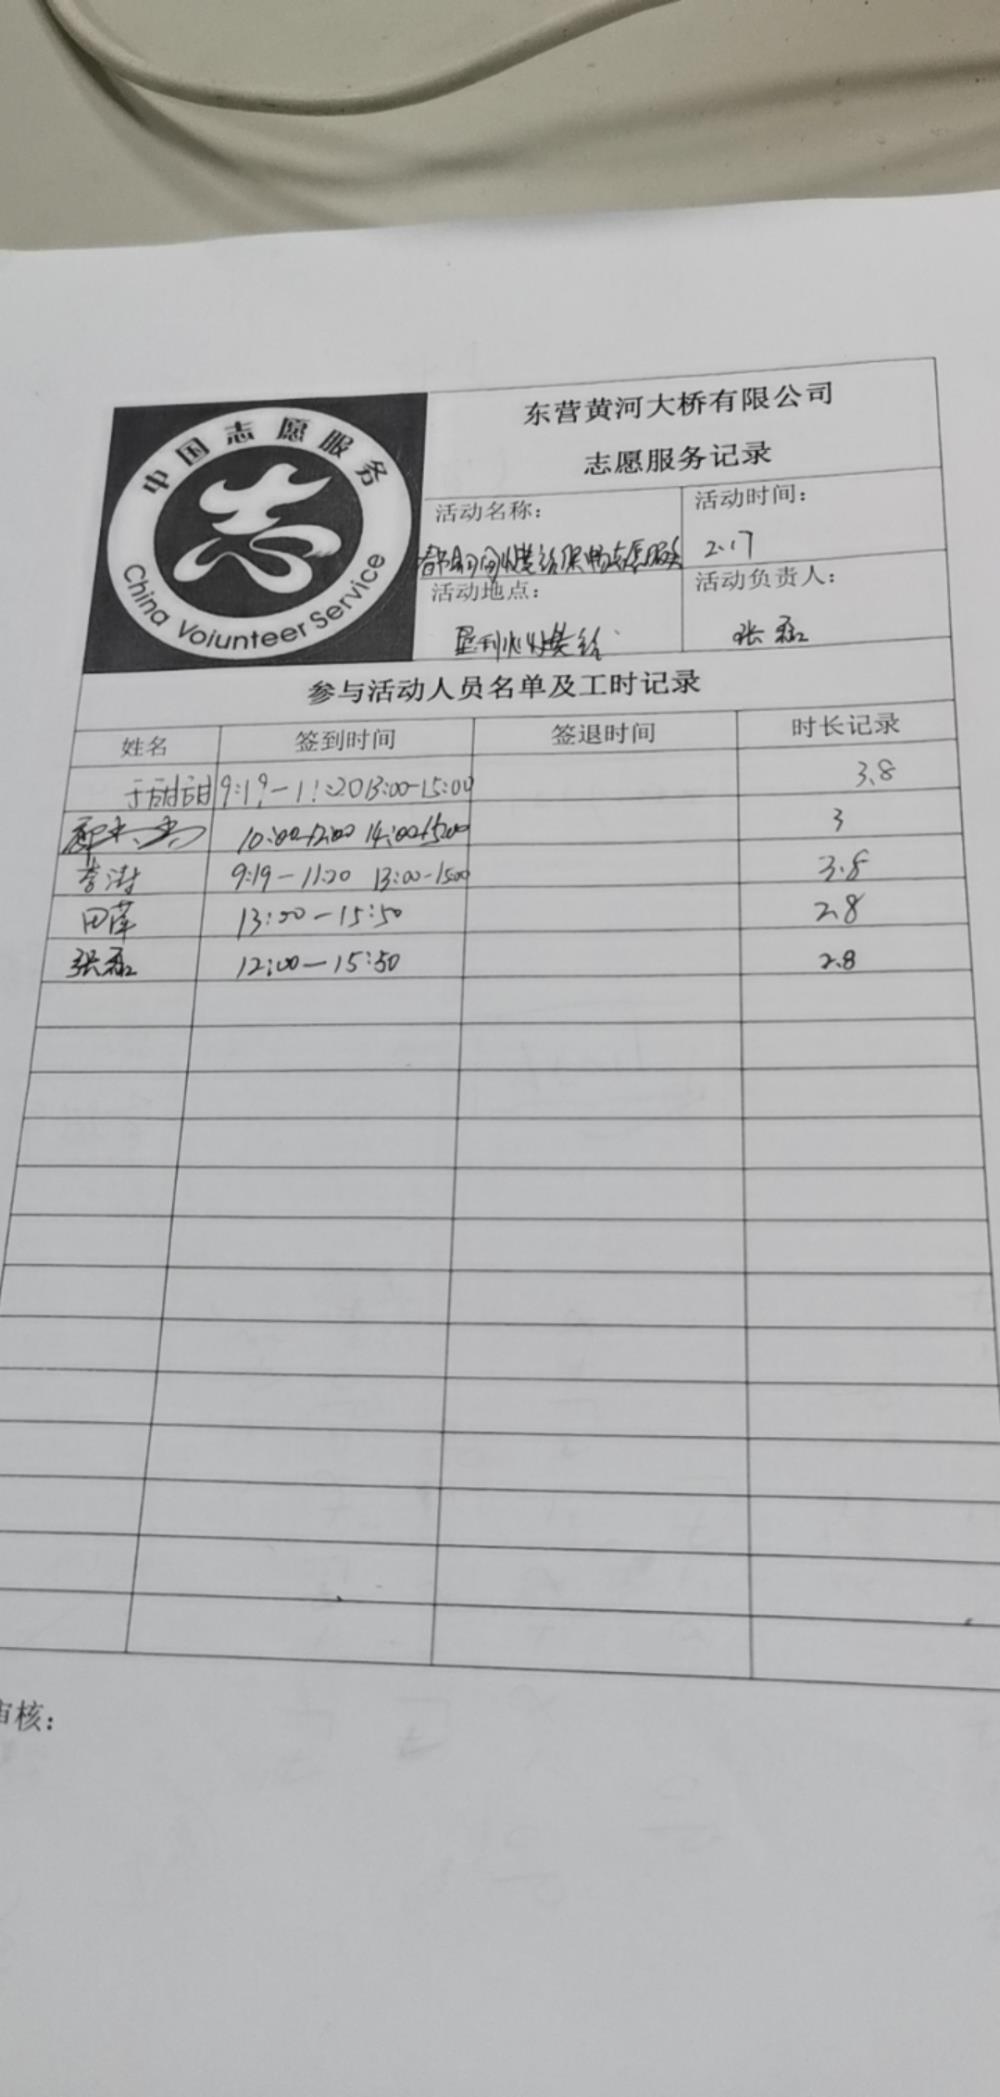 中国志愿服务
China Voiunteer Service
东营黄河大桥有限公司
志愿服务记录
活动名称：
活动时间：
春期间火 保畅志愿服务
2.17
活动地点：
活动负责人：
垦利
张磊
参与活动人员名单及工时记录
姓名 签到时间 签退时间 时长记录
于甜甜 9:19-11:20 13:00-15:00 3.8
10:00-12:00 14:00-15:00 3
李澍 9:19-11:20 13:00-15:00 3.8
田萍 13:00-15:50 2.8
张磊 12:00-15:50 2.8
审核：